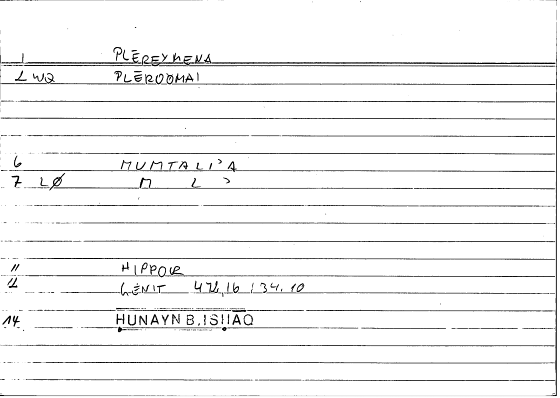 1 PLĒREYMENA
2 WQ PLĒROOMAI
6 MUMTALIʾA
7 LØ M L ʾ
11 HIPPOCR
12 GENIT 472,16 / 34.10
14 ḤUNAYN B. ISḤĀQ